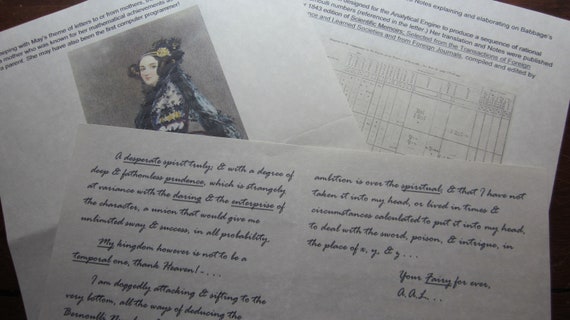 epping with May's theme of letters to or from mothers,
mother who was known for her mathematical achievements
s parent. She may have also been the first computer programmer!
Notes explaining and elaborating on Babbage's
designed for the Analytical Engine to produce a sequence of rational
noulli numbers (referenced in the letter.) Her translation and Notes were published
1843 edition of Scientific Memoirs, Selected from the Transactions of Foreign
nce and Learned Societies and from Foreign Journals, compiled and edited by
A desperate spirit truly; & with a degree of
deep & fathomless prudence, which is strangely
at variance with the daring & the enterprise of
the character, a union that would give me
unlimited sway & success, in all probability.
My kingdom however is not to be a
temporal one, thank Heaven! - . . .
I am doggedly attacking & sifting to the
very bottom, all the ways of deducing the
Bernoulli
ambition is over the spiritual; & that I have not
taken it into my head, or lived in times &
circumstances calculated to put it into my head,
to deal with the sword, poison, & intrigue, in
the place of x, y, & z . . .
Your Fairy for ever,
A.A.L . . .